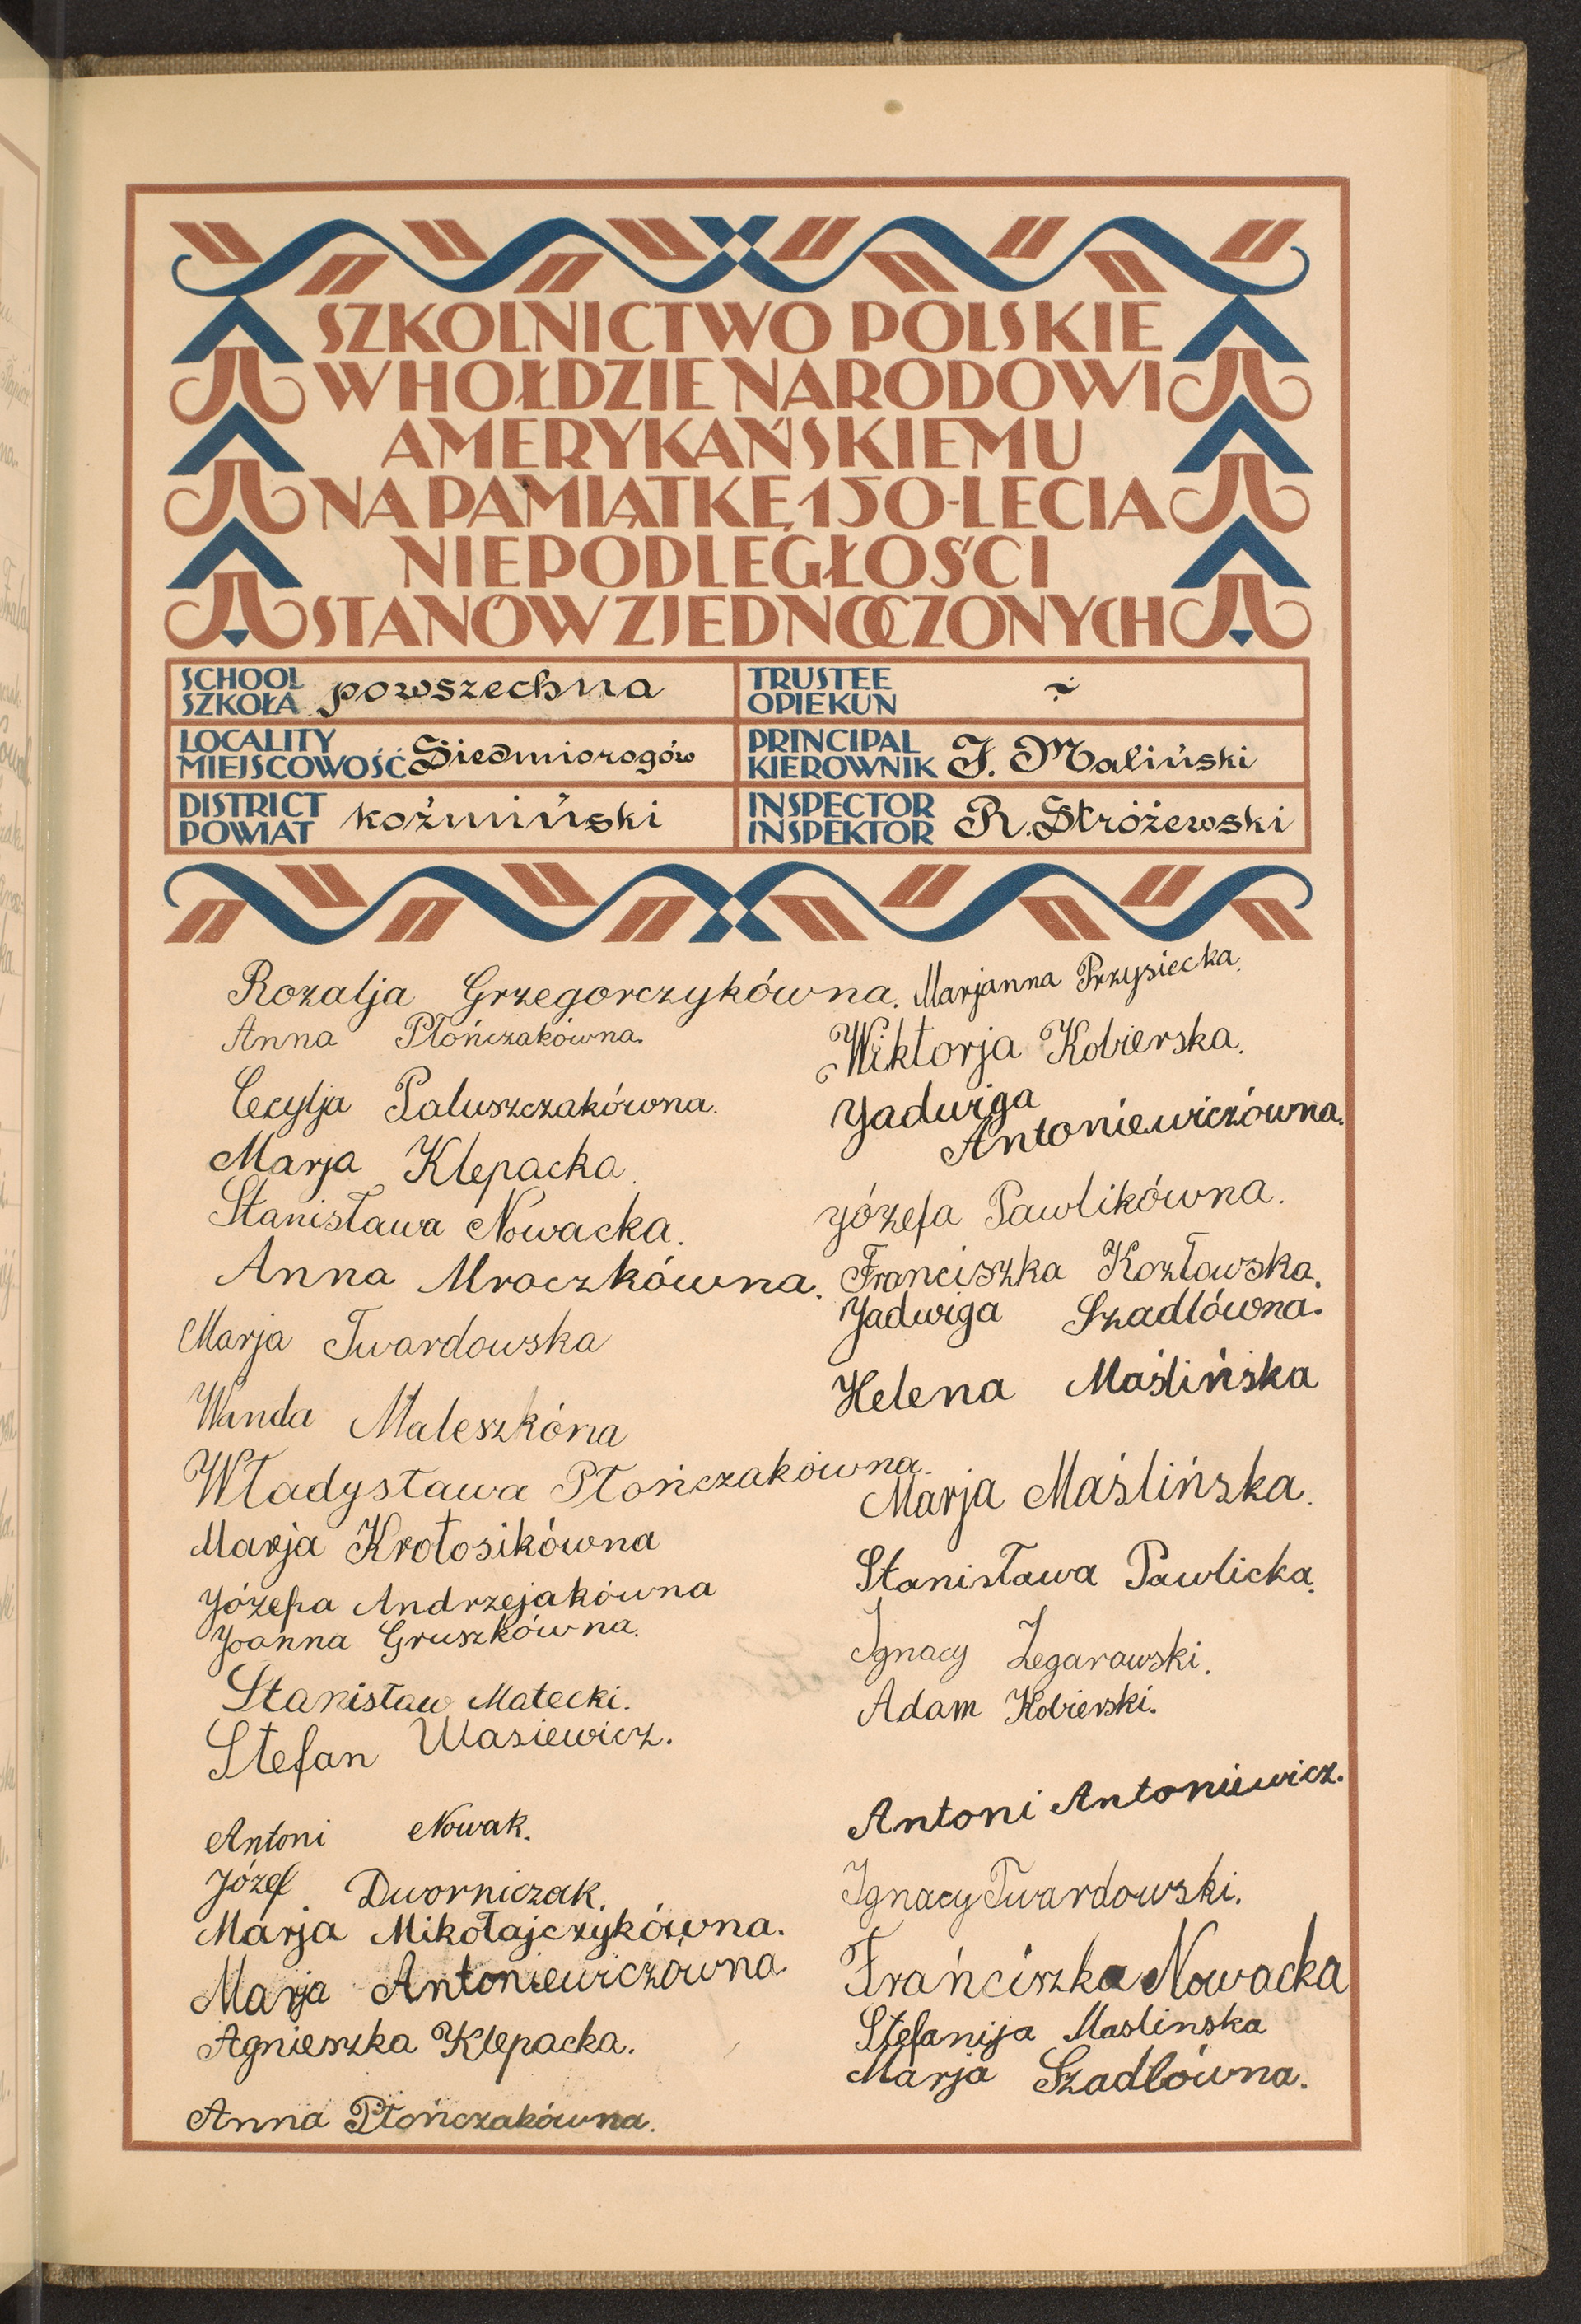 SZKOLNICTWO POLSKIE
W HOŁDZIE NARODOWI
AMERYKAŃSKIEMU
NA PAMIĄTKĘ 150-LECIA
NIEPODLEGŁOŚCI
STANÓW ZJEDNOCZONYCH
SCHOOL
SZKOŁA powszechna
TRUSTEE
OPIEKUN
LOCALITY
MIEJSCOWOŚĆ Siedmiorogów
PRINCIPAL
KIEROWNIK J. Maliński
DISTRICT
POWIAT koźmiński
INSPECTOR
INSPEKTOR R. Stróżewski
Rozalja Grzegorczykówna.
Anna Płończakówna.
Cecylja Paluszczakówna.
Marja Klepacka.
Stanisława Nowacka.
Anna Mroczkówna.
Marja Twardowska
Wanda Maleszkóna
Władysława Płończakówna.
Marja Krotosikówna
Józefa Andrzejakówna
Joanna Gruszkówna.
Stanisław Matecki.
Stefan Wasiewicz.
Antoni Nowak.
Józef Dworniczak.
Marja Mikołajczykówna.
Marja Antoniewiczówna
Agnieszka Klepacka.
Anna Płończakówna.
Marjanna Przysiecka.
Wiktorja Kobierska.
Jadwiga
Antoniewiczówna.
Józefa Pawlikówna.
Franciszka Kozłowska.
Jadwiga Szadlówna.
Helena Maślińska
Marja Maślińska.
Stanisława Pawlicka.
Ignacy Zegarowski.
Adam Kobierski.
Antoni Antoniewicz.
Ignacy Twardowski.
Frańciszka Nowacka
Stefanija Maslinska
Marja Szadlówna.